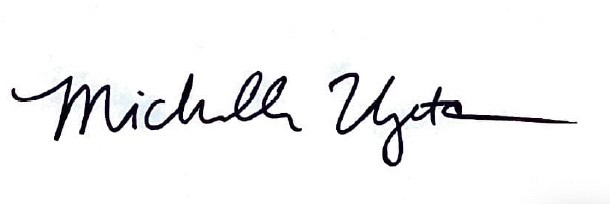 Michelle Uyeta